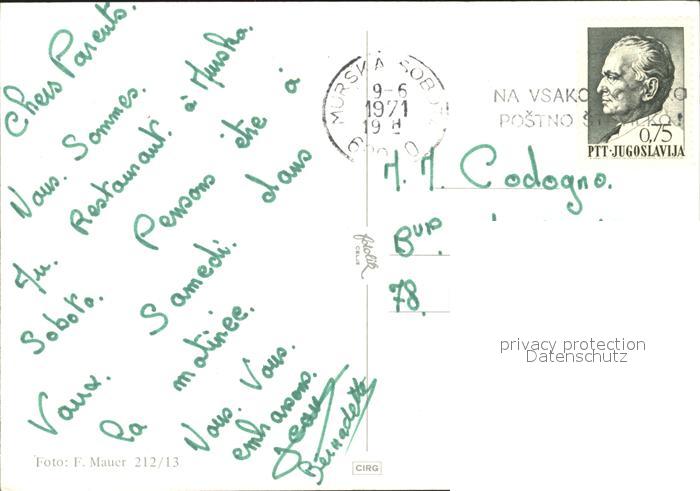 Chers Parents.
Nous. Sommes.
Au. Restaurant. à Murska.
Sobota. Pensons être à
Vaux. Samedi. dans
la matinée.
Nous. Vous.
embrassons.
Jean
Bernadette
MURSKA SOBOTA
9-6
1971
NA VSAKO
POŠTNO
0,75
PTT·JUGOSLAVIJA
M. M. Codogno.
78.
fotolik
CELJE
privacy protection
Datenschutz
Foto: F. Mauer 212/13
CIRG